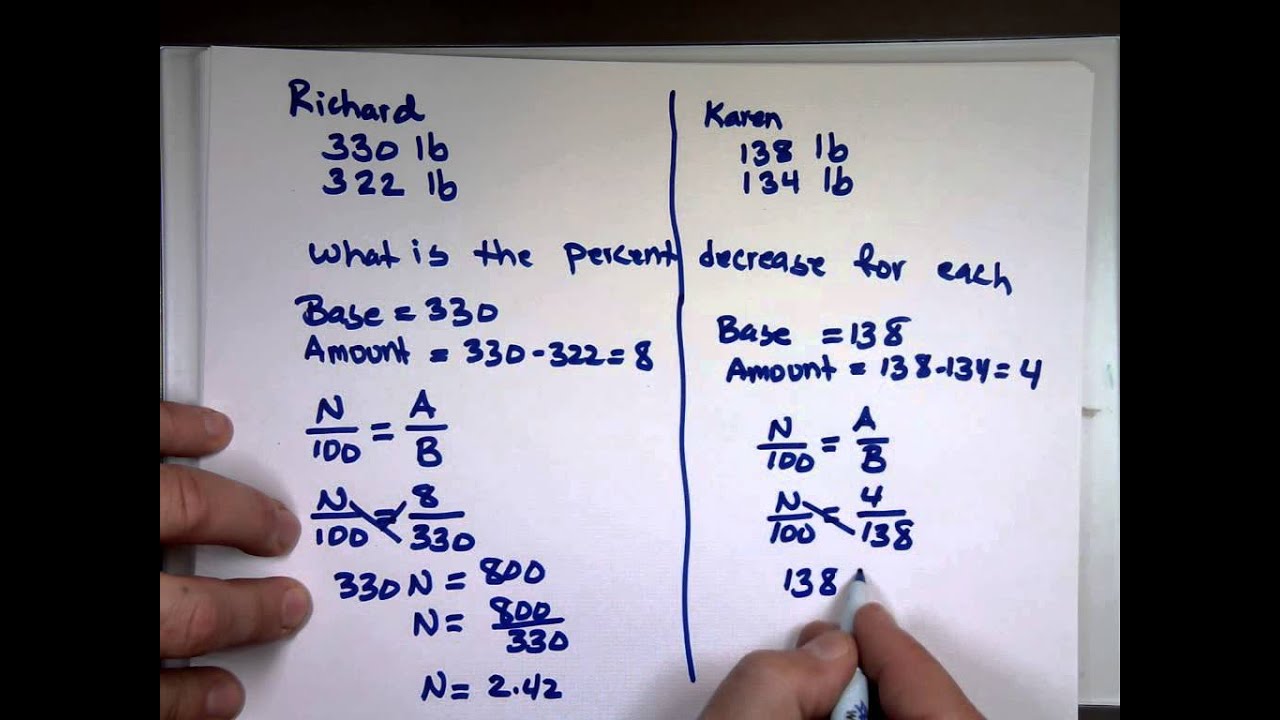 Richard
330 lb
322 lb
Karen
138 lb
134 lb
What is the percent decrease for each
Base = 330
Amount = 330-322=8
N/100 = A/B
N/100 = 8/330
330 N = 800
N = 800/330
N = 2.42
Base = 138
Amount = 138-134=4
N/100 = A/B
N/100 = 4/138
138